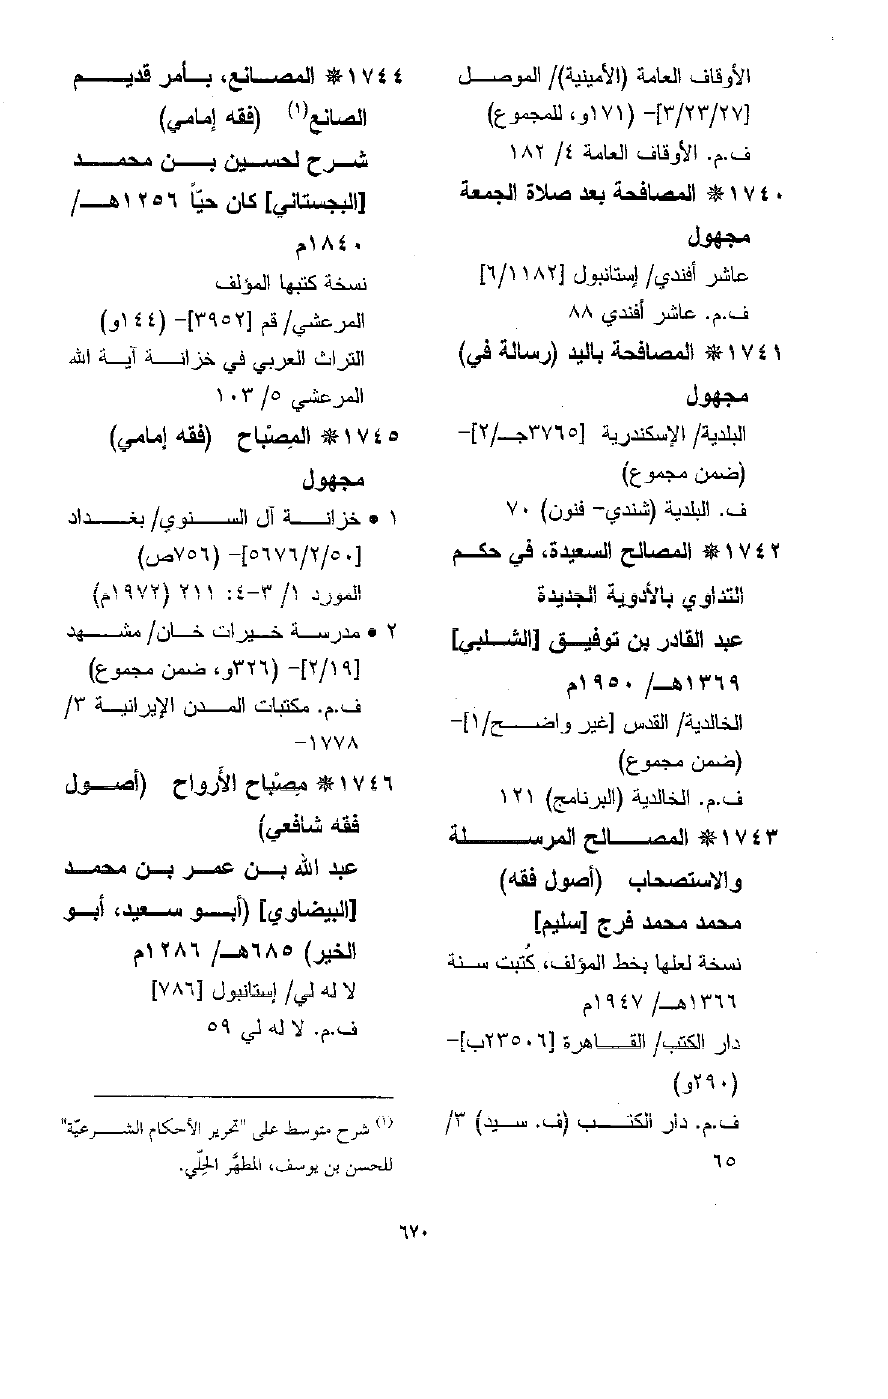 الأوقاف العامة (الأمينية)/ الموصل
[٣/٢٣/٢٧]- (١٧١و، للمجموع)
ف.م. الأوقاف العامة ٤/ ١٨٢
١٧٤٠* المصافحة بعد صلاة الجمعة
مجهول
عاشر أفندي/ إستانبول [٦/١١٨٢]
ف.م. عاشر أفندي ٨٨
١٧٤١* المصافحة باليد (رسالة في)
مجهول
البلدية/ الإسكندرية [٣٧٦٥جـ/٢]-
(ضمن مجموع)
ف. البلدية (شندي- فنون) ٧٠
١٧٤٢* المصالح السعيدة، في حكم
التداوي بالأدوية الجديدة
عبد القادر بن توفيق [الشلبي]
١٣٦٩هـ/ ١٩٥٠م
الخالدية/ القدس [غير واضح/١]-
(ضمن مجموع)
ف.م. الخالدية (البرنامج) ١٢١
١٧٤٣* المصالح المرسلة
والاستصحاب (أصول فقه)
محمد محمد فرج [سليم]
نسخة لعلها بخط المؤلف، كُتبت سنة
١٣٦٦هـ/ ١٩٤٧م
دار الكتب/ القاهرة [٢٣٥٠٦ب]-
(٢٩٠و)
ف.م. دار الكتب (ف. سيد) ٣/
٦٥
١٧٤٤* المصانع، بأمر قديم
الصانع(١) (فقه إمامي)
شرح لحسين بن محمد
[البجستاني] كان حيّاً ١٢٥٦هـ/
١٨٤٠م
نسخة كتبها المؤلف
المرعشي/ قم [٣٩٥٢]- (١٤٤و)
التراث العربي في خزانة آية الله
المرعشي ٥/ ١٠٣
١٧٤٥* المِصْبَاح (فقه إمامي)
مجهول
١ • خزانة آل السنوي/ بغداد
[٥٦٧٦/٢/٥٠]- (٧٥٦ص)
المورد ١/ ٣-٤: ٢١١ (١٩٧٢م)
٢ • مدرسة خيرات خان/ مشهد
[٢/١٩]- (٣٢٦و، ضمن مجموع)
ف.م. مكتبات المدن الإيرانية ٣/
١٧٧٨-
١٧٤٦* مِصْبَاح الأَرواح (أصول
فقه شافعي)
عبد الله بن عمر بن محمد
[البيضاوي] (أبو سعيد، أبو
الخير) ٦٨٥هـ/ ١٢٨٦م
لا له لي/ إستانبول [٧٨٦]
ف.م. لا له لي ٥٩
(١) شرح متوسط على "تحرير الأحكام الشرعيّة"
للحسن بن يوسف، المطهَّر الحِلّي.
٦٧٠